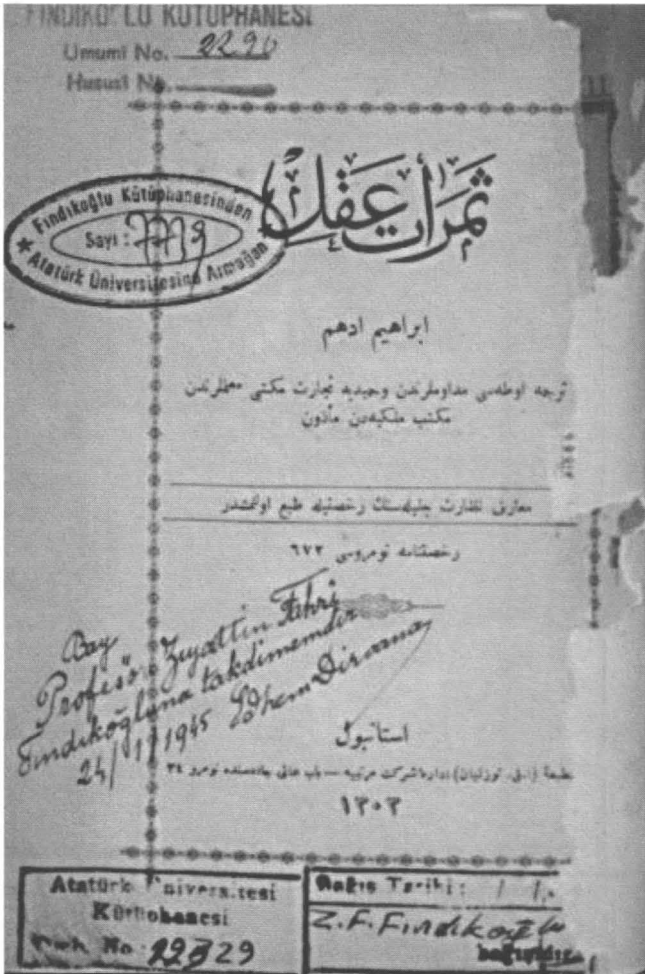 FINDIKO LU KÜTÜPHANESİ
Umumî No. 2290
Hususî No.
Fındıkoğlu Kütüphanesinden
Sayı :
Atatürk Üniversitesine Armağan
ثمرات عقل
ابراهيم ادهم
ترجمه اوطه‌سى مداوملرندن وحيديه تجارت مكتبى معلملرندن
مكتب ملكيه‌دن مأذون
معارف نظارت جليله‌سنك رخصتيله طبع اولنمشدر
رخصتنامه نومروسى ٦٧٢
Bay
Profesör Ziyattin Fahri
Fındıkoğluna takdimemdir
24/1/1945 Edhem Dirvana
استانبول
شركت مرتبيه — باب عالى جاده‌سنده نومرو ٣٤
١٣٠٣
Atatürk Üniversitesi
Kütüphanesi
No : 22329
Bağış Tarihi : / /
Z.F. Fındıkoğlu
bağışıdır